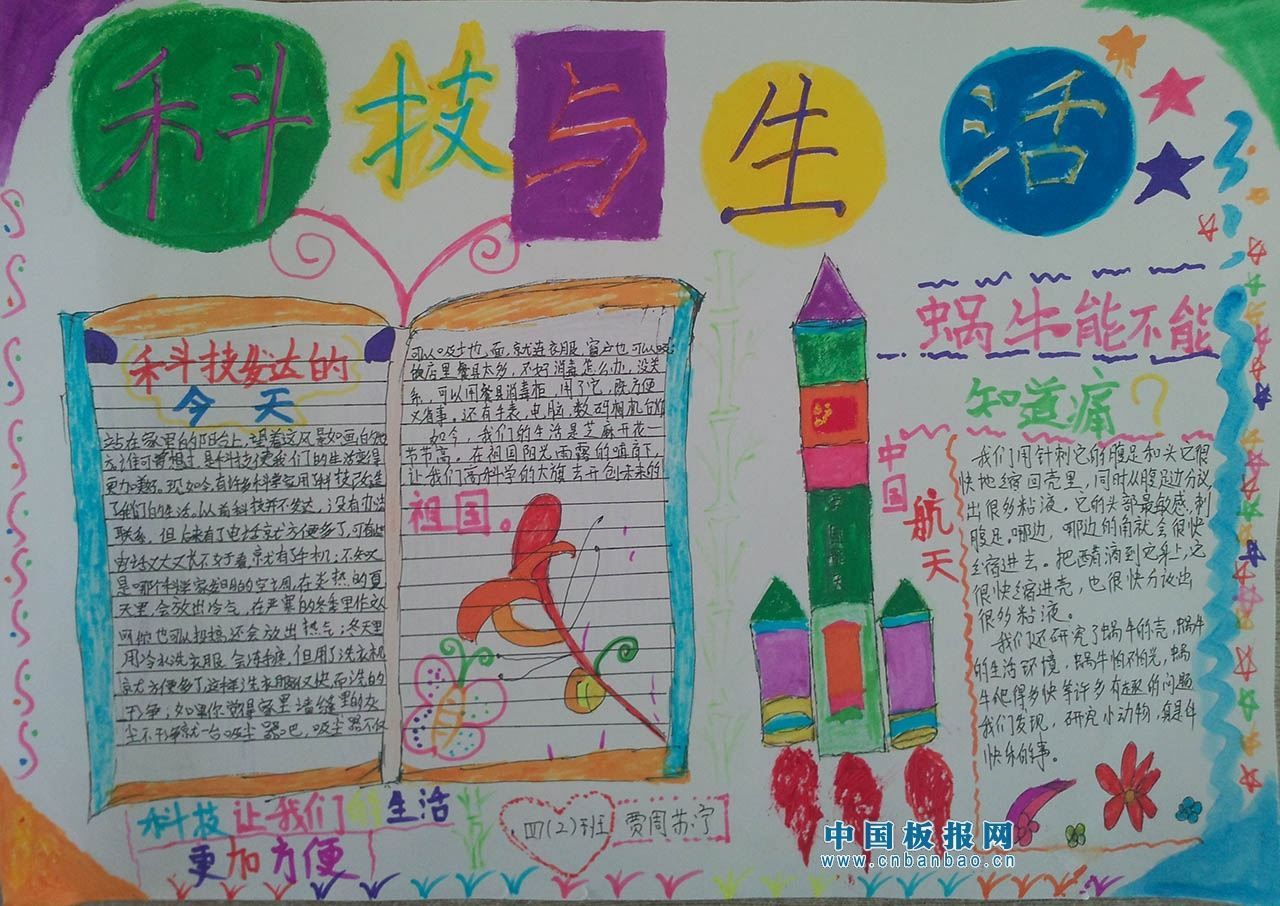 科技与生活
科斗技发达的
今天
站在家里的阳台上,望着这风景如画的
更加美好。现如今,有许多科学家用了科技改造
了我们的生活。从前科技并不发达,没有办法
联系,但后来有了电话就方便多了,可有些
电话又大又长不好于看,就有了手机;不知又
是哪个科学家发明的空调,在炎热的夏
天里,会放出冷气,在严寒的冬季里
还会放出热气;冬天里
用冷水洗衣服会冻手,但用了洗衣机
就方便多了,这样洗衣服又快而洗的
干净;如果你觉得家里墙缝里的灰
尘不干净就一台吸尘器吧,吸尘器不仅
可以吸土地,而就连衣服窗户也可以吸;
饭店里餐具太多,不好消毒怎么办,没关
系,可以用餐具消毒柜,用了它,既方便
又省事。还有手表,电脑,数码相机
如今,我们的生活是芝麻开花一
节节高。在祖国阳光雨露的哺育下,
让我们高科学的大旗去开创未来的
祖国。
中国
航天
蜗牛能不能
知道痛?
我们用针刺它的腹足和头它很
快地缩回壳里,同时从腹足边分泌
出很多粘液。它的头部最敏感,刺
腹足哪边,哪边的角就会很快
缩进去。把醋滴到它身上,它
很快缩进壳,也很快分泌出
很多粘液。
我们还研究了蜗牛的壳,蜗牛
的生活环境,蜗牛怕不怕光,蜗
牛爬得多快等许多有趣的问题
我们发现,研究小动物,真是件
快乐的事。
科技让我们的生活
更加方便
四(2)班 贾周苏宁
中国板报网
www.cnbanbao.cn